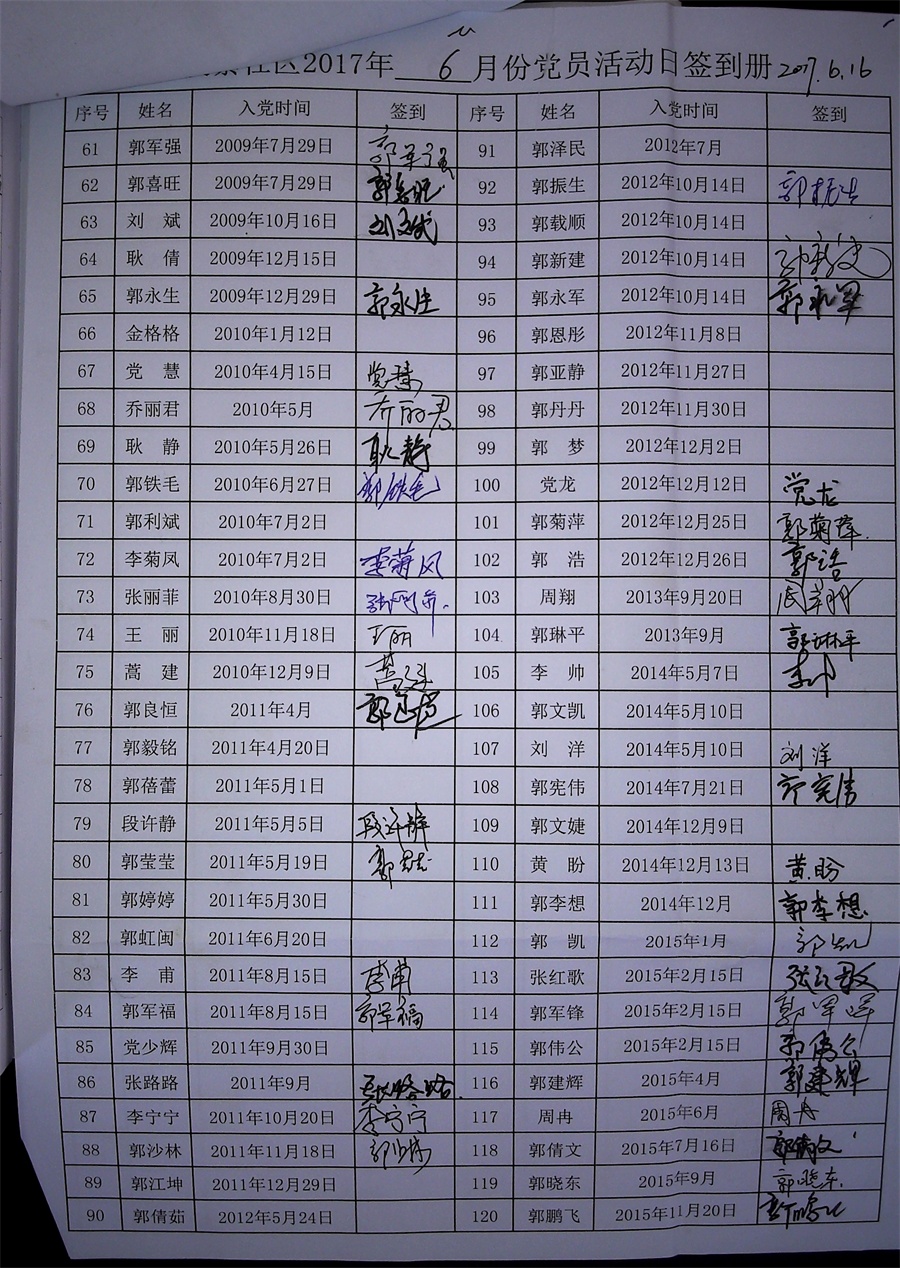 社区2017年 6 月份党员活动日签到册 2017.6.16
序号 姓名 入党时间 签到 序号 姓名 入党时间 签到
61 郭军强 2009年7月29日 郭军强 91 郭泽民 2012年7月
62 郭喜旺 2009年7月29日 郭喜旺 92 郭振生 2012年10月14日 郭振生
63 刘 斌 2009年10月16日 刘斌 93 郭载顺 2012年10月14日
64 耿 倩 2009年12月15日 94 郭新建 2012年10月14日
65 郭永生 2009年12月29日 郭永生 95 郭永军 2012年10月14日 郭永军
66 金格格 2010年1月12日 96 郭恩彤 2012年11月8日
67 党 慧 2010年4月15日 党慧 97 郭亚静 2012年11月27日
68 乔丽君 2010年5月 乔丽君 98 郭丹丹 2012年11月30日
69 耿 静 2010年5月26日 耿静 99 郭 梦 2012年12月2日
70 郭铁毛 2010年6月27日 郭铁毛 100 党龙 2012年12月12日 党龙
71 郭利斌 2010年7月2日 101 郭菊萍 2012年12月25日 郭菊萍
72 李菊凤 2010年7月2日 李菊凤 102 郭 浩 2012年12月26日 郭浩
73 张丽菲 2010年8月30日 103 周翔 2013年9月20日 周翔
74 王 丽 2010年11月18日 王丽 104 郭琳平 2013年9月 郭琳平
75 蒿 建 2010年12月9日 蒿建 105 李 帅 2014年5月7日 李帅
76 郭良恒 2011年4月 郭良恒 106 郭文凯 2014年5月10日
77 郭毅铭 2011年4月20日 107 刘 洋 2014年5月10日 刘洋
78 郭蓓蕾 2011年5月1日 108 郭宪伟 2014年7月21日 郭宪伟
79 段许静 2011年5月5日 段许静 109 郭文婕 2014年12月9日
80 郭莹莹 2011年5月19日 郭莹莹 110 黄 盼 2014年12月13日 黄盼
81 郭婷婷 2011年5月30日 111 郭李想 2014年12月 郭李想
82 郭虹闽 2011年6月20日 112 郭 凯 2015年1月 郭凯
83 李 甫 2011年8月15日 李甫 113 张红歌 2015年2月15日 张红歌
84 郭军福 2011年8月15日 郭军福 114 郭军锋 2015年2月15日 郭军锋
85 党少辉 2011年9月30日 115 郭伟公 2015年2月15日 郭伟公
86 张路路 2011年9月 张路路 116 郭建辉 2015年4月 郭建辉
87 李宁宁 2011年10月20日 李宁宁 117 周冉 2015年6月 周冉
88 郭沙林 2011年11月18日 郭沙林 118 郭倩文 2015年7月16日 郭倩文
89 郭江坤 2011年12月29日 119 郭晓东 2015年9月 郭晓东
90 郭倩茹 2012年5月24日 120 郭鹏飞 2015年11月20日 郭鹏飞